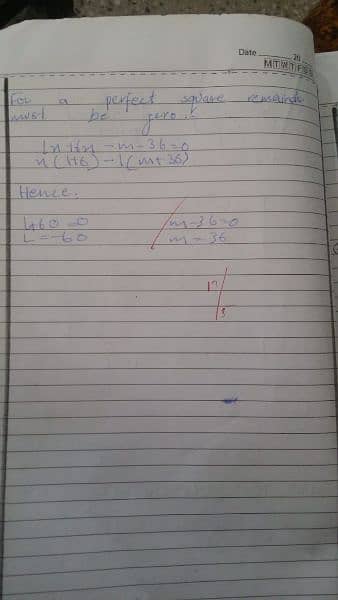 Date 20
M T W T F S S
For a perfect square remainder
must be zero.
lx+6x - m-36=0
x(l+6) - 1(m+36)
Hence.
L+60=0 m-36=0
L=-60 m = 36